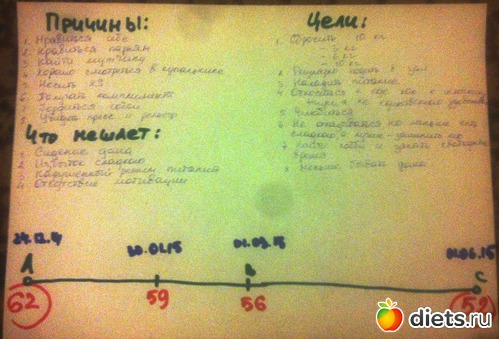 Причины:
1. Нравится себе
2. Нравиться парням
3. Найти мужчину
4. Хорошо смотреться в купальнике
5. Носить XS
6. Получать комплименты
7. Гордиться собой
8. Увидеть пресс и рельеф
Что мешает:
1. Сидение дома
2. Избыток сладкого
3. Нарушенный режим питания
4. Отсутствие мотивации
Цели:
1. Сбросить 10 кг
- 3 кг
- 6 кг
- 10 кг
2. Регулярно ходить в зал
3. Наладить питание
4. Относиться к еде как к
5. Влюбиться
6. Не
сладкого
7. Найти хобби и занять свободное
время
8. Меньше бывать дома
24.12.14
30.01.15
01.03.15
01.06.15
A
B
C
62
59
56
52
diets.ru